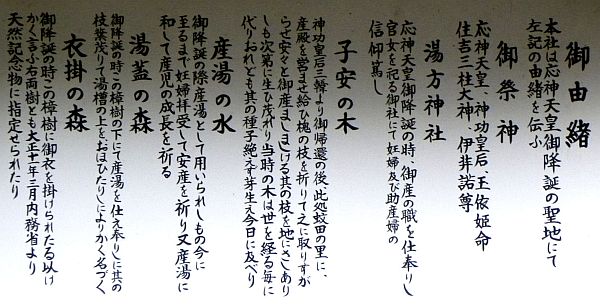 御由緒
本社は応神天皇御降誕の聖地にて
左記の由緒を伝ふ
御祭神
応神天皇、神功皇后、玉依姫命
住吉三柱大神、伊弉諾尊
湯方神社
応神天皇御降誕の時、御産の職を仕奉りし
官女を祀る御社にて妊婦及び助産婦の
信仰篤し
子安の木
神功皇后三韓より御帰還の後、此処蚊田の里に、
産殿を営ませ給ひ槐の枝を折りて之に取りすが
らせ安々と御産まし〱ける其の枝を地にさしあり
しも次第に生ひ茂り当時の木は世を経る毎に
代りおれとも其の種子絶えす芽生え今日に及べり
産湯の水
御降誕の際産湯として用いられしもの今に
至るまで妊婦拝受して安産を祈り又産湯に
和して産児の成長を祈る
湯蓋の森
御降誕の時この樟樹の下にて産湯を仕え奉りしに其の
枝葉茂りて湯槽の上をおほひたりしによりかく名づく
衣掛の森
御降誕の時この樟樹に御衣を掛けられたる以け
かく言ふ右両樹とも大正十一年三月内務省より
天然記念物に指定せられたり